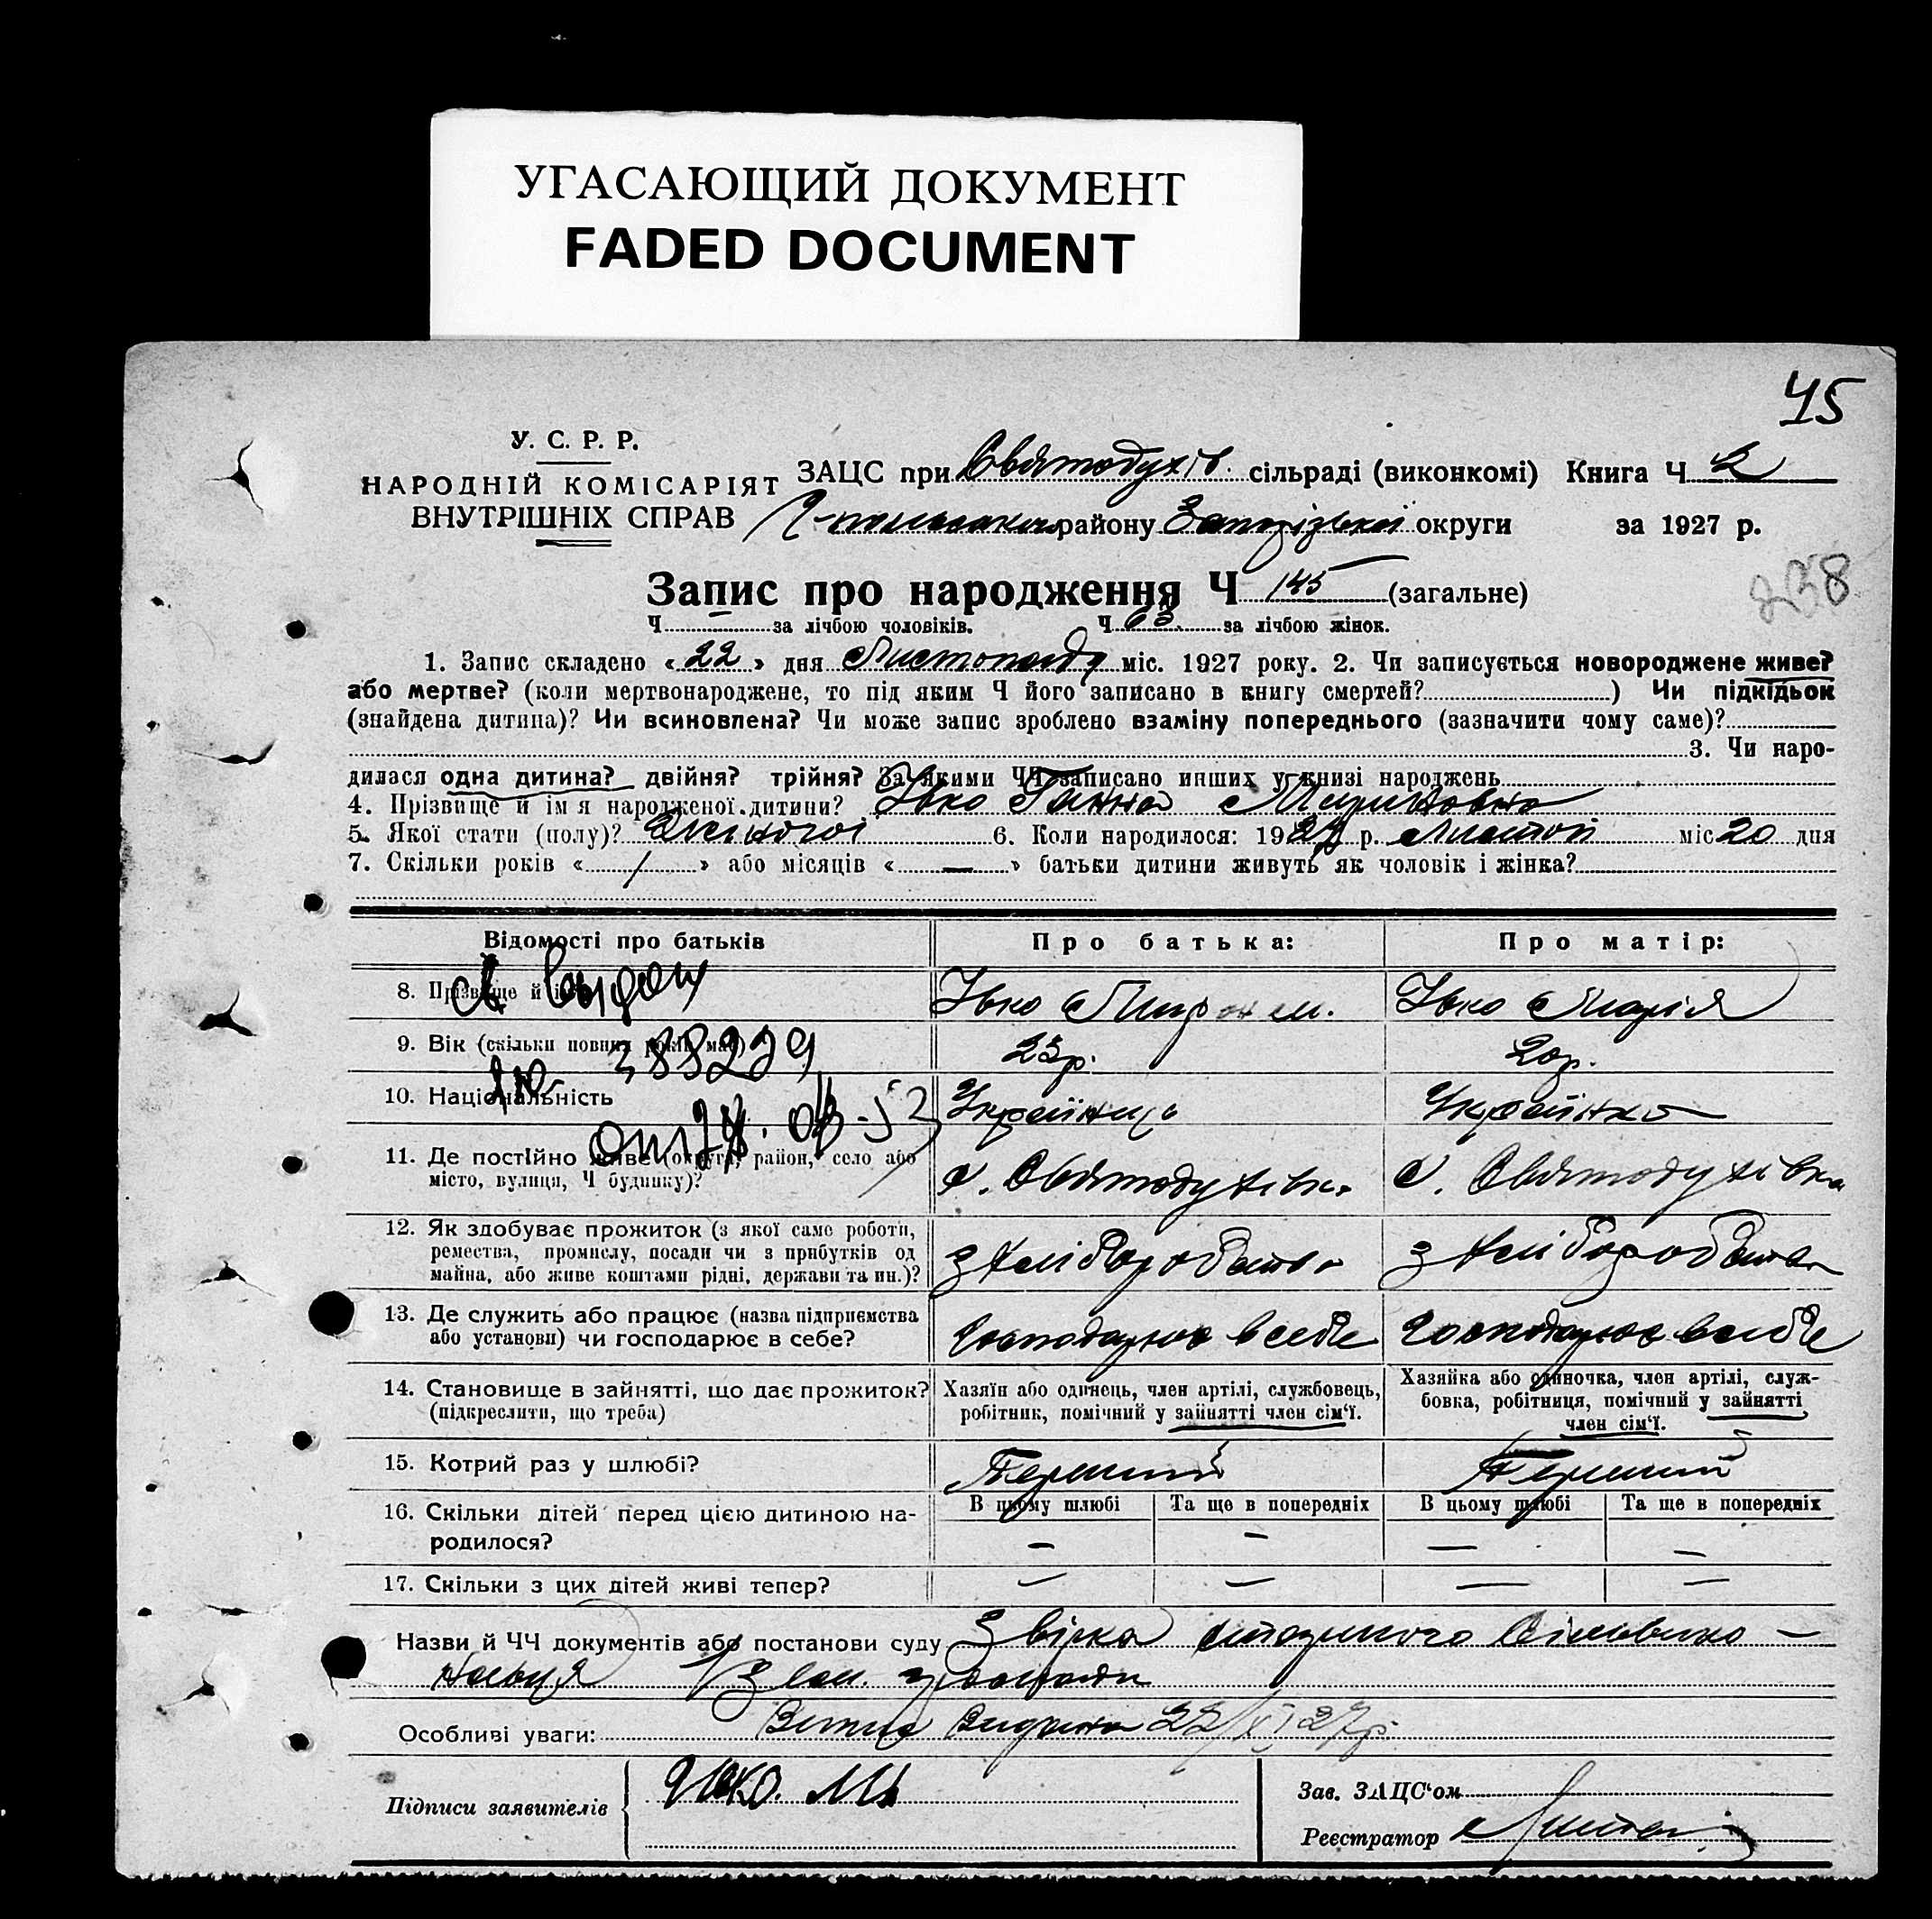 УГАСАЮЩИЙ ДОКУМЕНТ
FADED DOCUMENT
45
У. С. Р. Р.
НАРОДНІЙ КОМІСАРІЯТ
ВНУТРІШНІХ СПРАВ
ЗАЦС при Святодухів. сільраді (виконкомі) Книга Ч 2
району Запорізької округи за 1927 р.
238
Запис про народження Ч 145 (загальне)
Ч — за лічбою чоловіків. Ч 63 за лічбою жінок.
1. Запис складено « 22 » дня Листопаду міс. 1927 року. 2. Чи записується новороджене живе?
або мертве? (коли мертвонароджене, то під яким Ч його записано в книгу смертей? ) Чи підкідьок
(знайдена дитина)? Чи всиновлена? Чи може запис зроблено взаміну попереднього (зазначити чому саме)?
3. Чи наро-
дилася одна дитина? двійня? трійня? За якими ЧЧ записано инших у книзі народжень
4. Прізвище й ім'я народженої дитини? Івко Ганна Мироновна
5. Якої стати (полу)? Жіночої 6. Коли народилося: 1927 р. Листоп міс 20 дня
7. Скільки років « 1 » або місяців « — » батьки дитини живуть як чоловік і жінка?
Відомості про батьків Про батька: Про матір:
8. Прізвище й ім'я Івко Мирон М. Івко Марія
9. Вік (скільки повних років має) 23р. 20р.
388229
10. Національність Українець Українка
11. Де постійно живе (округа, район, село або
місто, вулиця, Ч будинку)? с. Святодухівка с. Святодухівка
12. Як здобуває прожиток (з якої саме роботи,
ремества, промислу, посади чи з прибутків од
майна, або живе коштами рідні, держави та ин.)? з хліборобства з хліборобства
13. Де служить або працює (назва підприємства
або установи) чи господарює в себе? Господарює в себе Господарює в себе
14. Становище в зайнятті, що дає прожиток?
(підкреслити, що треба)
Хазяїн або одинець, член артілі, службовець,
робітник, помічний у зайнятті член сім'ї.
Хазяйка або одиночка, член артілі, служ-
бовка, робітниця, помічний у зайнятті
член сім'ї.
15. Котрий раз у шлюбі? Перший Перший
В цьому шлюбі Та ще в попередніх В цьому шлюбі Та ще в попередніх
16. Скільки дітей перед цією дитиною на-
родилося? — — — —
17. Скільки з цих дітей живі тепер? — — — —
Назви й ЧЧ документів або постанови суду
Особливі уваги: Витяг Видана 22/XI 27р.
Підписи заявителів Ивко. М
Зав. ЗАЦС'ом
Реєстратор